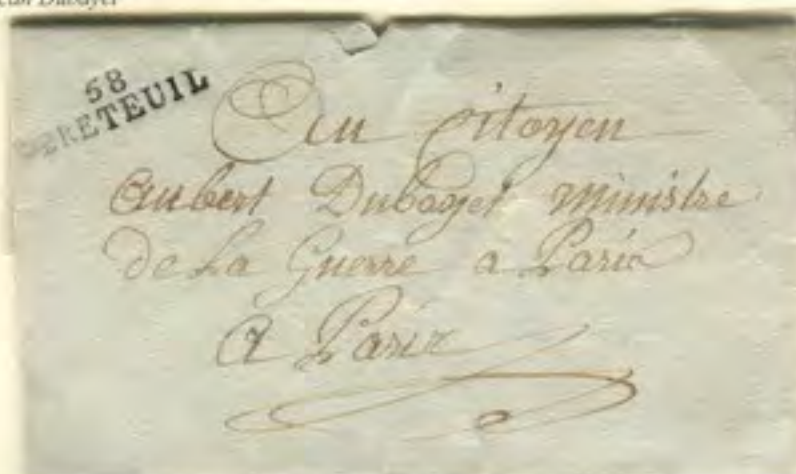 Jean Dubayet
58
BRETEUIL
Au Citoyen
Aubert Dubayet ministre
de La Guerre a Paris
A Paris